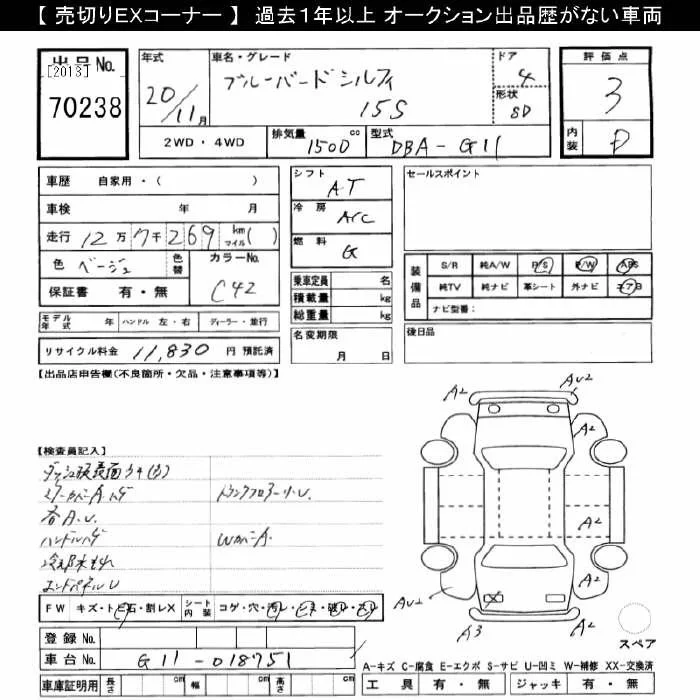 【 売切りEXコーナー 】 過去1年以上 オークション出品歴がない車両
出品No.
[2013]
70238
年式
20/11月
車名・グレード
ブルーバードシルフィ
15S
ドア
4
形状
SD
評価点
3
内装
D
2WD・4WD
排気量
1500 cc
型式
DBA-G11
車歴 自家用・( )
車検 年 月
走行 12万7千269 km マイル( )
色 ベージュ
色替
カラーNo.
C42
保証書 有・無
モデル年式 年 ハンドル 左・右 ディーラー・並行
リサイクル料金 11,830 円 預託済
シフト
AT
冷房
A/C
燃料
G
乗車定員 名
積載量 kg
総重量 kg
名変期限
月 日
セールスポイント
装備品
S/R 純A/W P/S P/W ABS
純TV 純ナビ 革シート 外ナビ エアB
ナビ型番:
後日品
【出品店申告欄(不良箇所・欠品・注意事項等)】
【検査員記入】
各A.U.
トランクフロアーサビU.
ハンドルスレ
WカバーA
エンドパネルU
A2
AU2
A2
A2
A2
AU2
A3
X
スペア
FW キズ・トビ石・割レX
シート内装 コゲ・穴・汚レ・ヒヒ・破レ・スレ
登録No.
車台No. G11-018751
車庫証明用 長さ cm 幅 cm 高さ cm
A-キズ C-腐食 E-エクボ S-サビ U-凹ミ W-補修 XX-交換済
工具 有・無 ジャッキ 有・無